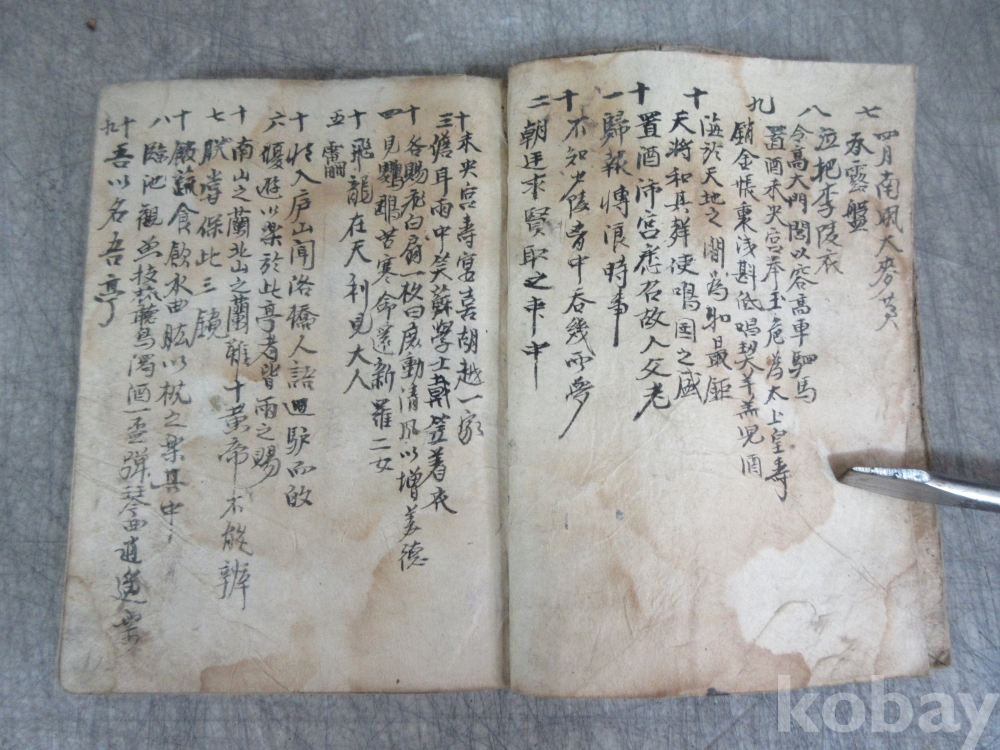 四月南風大麥黃
七 承露盤
八 泣把李陵衣
令高大門閭以容高車駟馬
置酒未央宮奉玉卮為太上皇壽
九 銷金帳裏淺斟低唱 羊羔兒酒
十 天地之間為 最鉅
天將和其聲使鳴國之盛
十 置酒沛宮悉召故人父老
一 歸報博浪時事
十 不知少陵胷中吞幾雲夢
二 朝廷求賢
十 未央宮壽宴喜胡越一家
三 儋耳雨中笑蘇學士戴笠着
十 各賜飛白扇一枚曰庶動清風以增美德
四 見鸚鵡苦寒命還新羅二女
十 飛龍在天利見大人
五 雷
十 入庐山聞洛橋人語 驢而
六 優遊以樂於此亭者皆雨之賜
十 南山之蘭北山之蘭雖十黃帝不能辨
七 朕當保此三鏡
十 飯蔬食飲水曲肱以枕之樂其中
八 臨池觀 聽鶯濁酒一盃彈琴
十九 吾以名吾亭
kobay